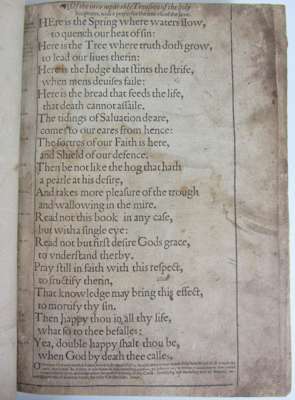 Of the incomparable Treasure of the holy
Scriptures, with a prayer for the true use of the same.
HEre is the Spring where waters flow,
to quench our heat of sin:
Here is the Tree where truth doth grow,
to lead our liues therin:
Here is the Iudge that stints the strife,
when mens deuises faile:
Here is the bread that feeds the life,
that death cannot assaile.
The tidings of Saluation deare,
comes to our eares from hence:
The fortres of our Faith is here,
and Shield of our defence.
Then be not like the hog that hath
a pearle at his desire,
And takes more pleasure of the trough
and wallowing in the mire.
Read not this book in any case,
but with a single eye:
Read not but first desire Gods grace,
to vnderstand therby.
Pray still in faith with this respect,
to fructify therin,
That knowledge may bring this effect,
to mortify thy sin.
Then happy thou in all thy life,
what so to thee befalles:
Yea, double happy shalt thou be,
when God by death thee calles.